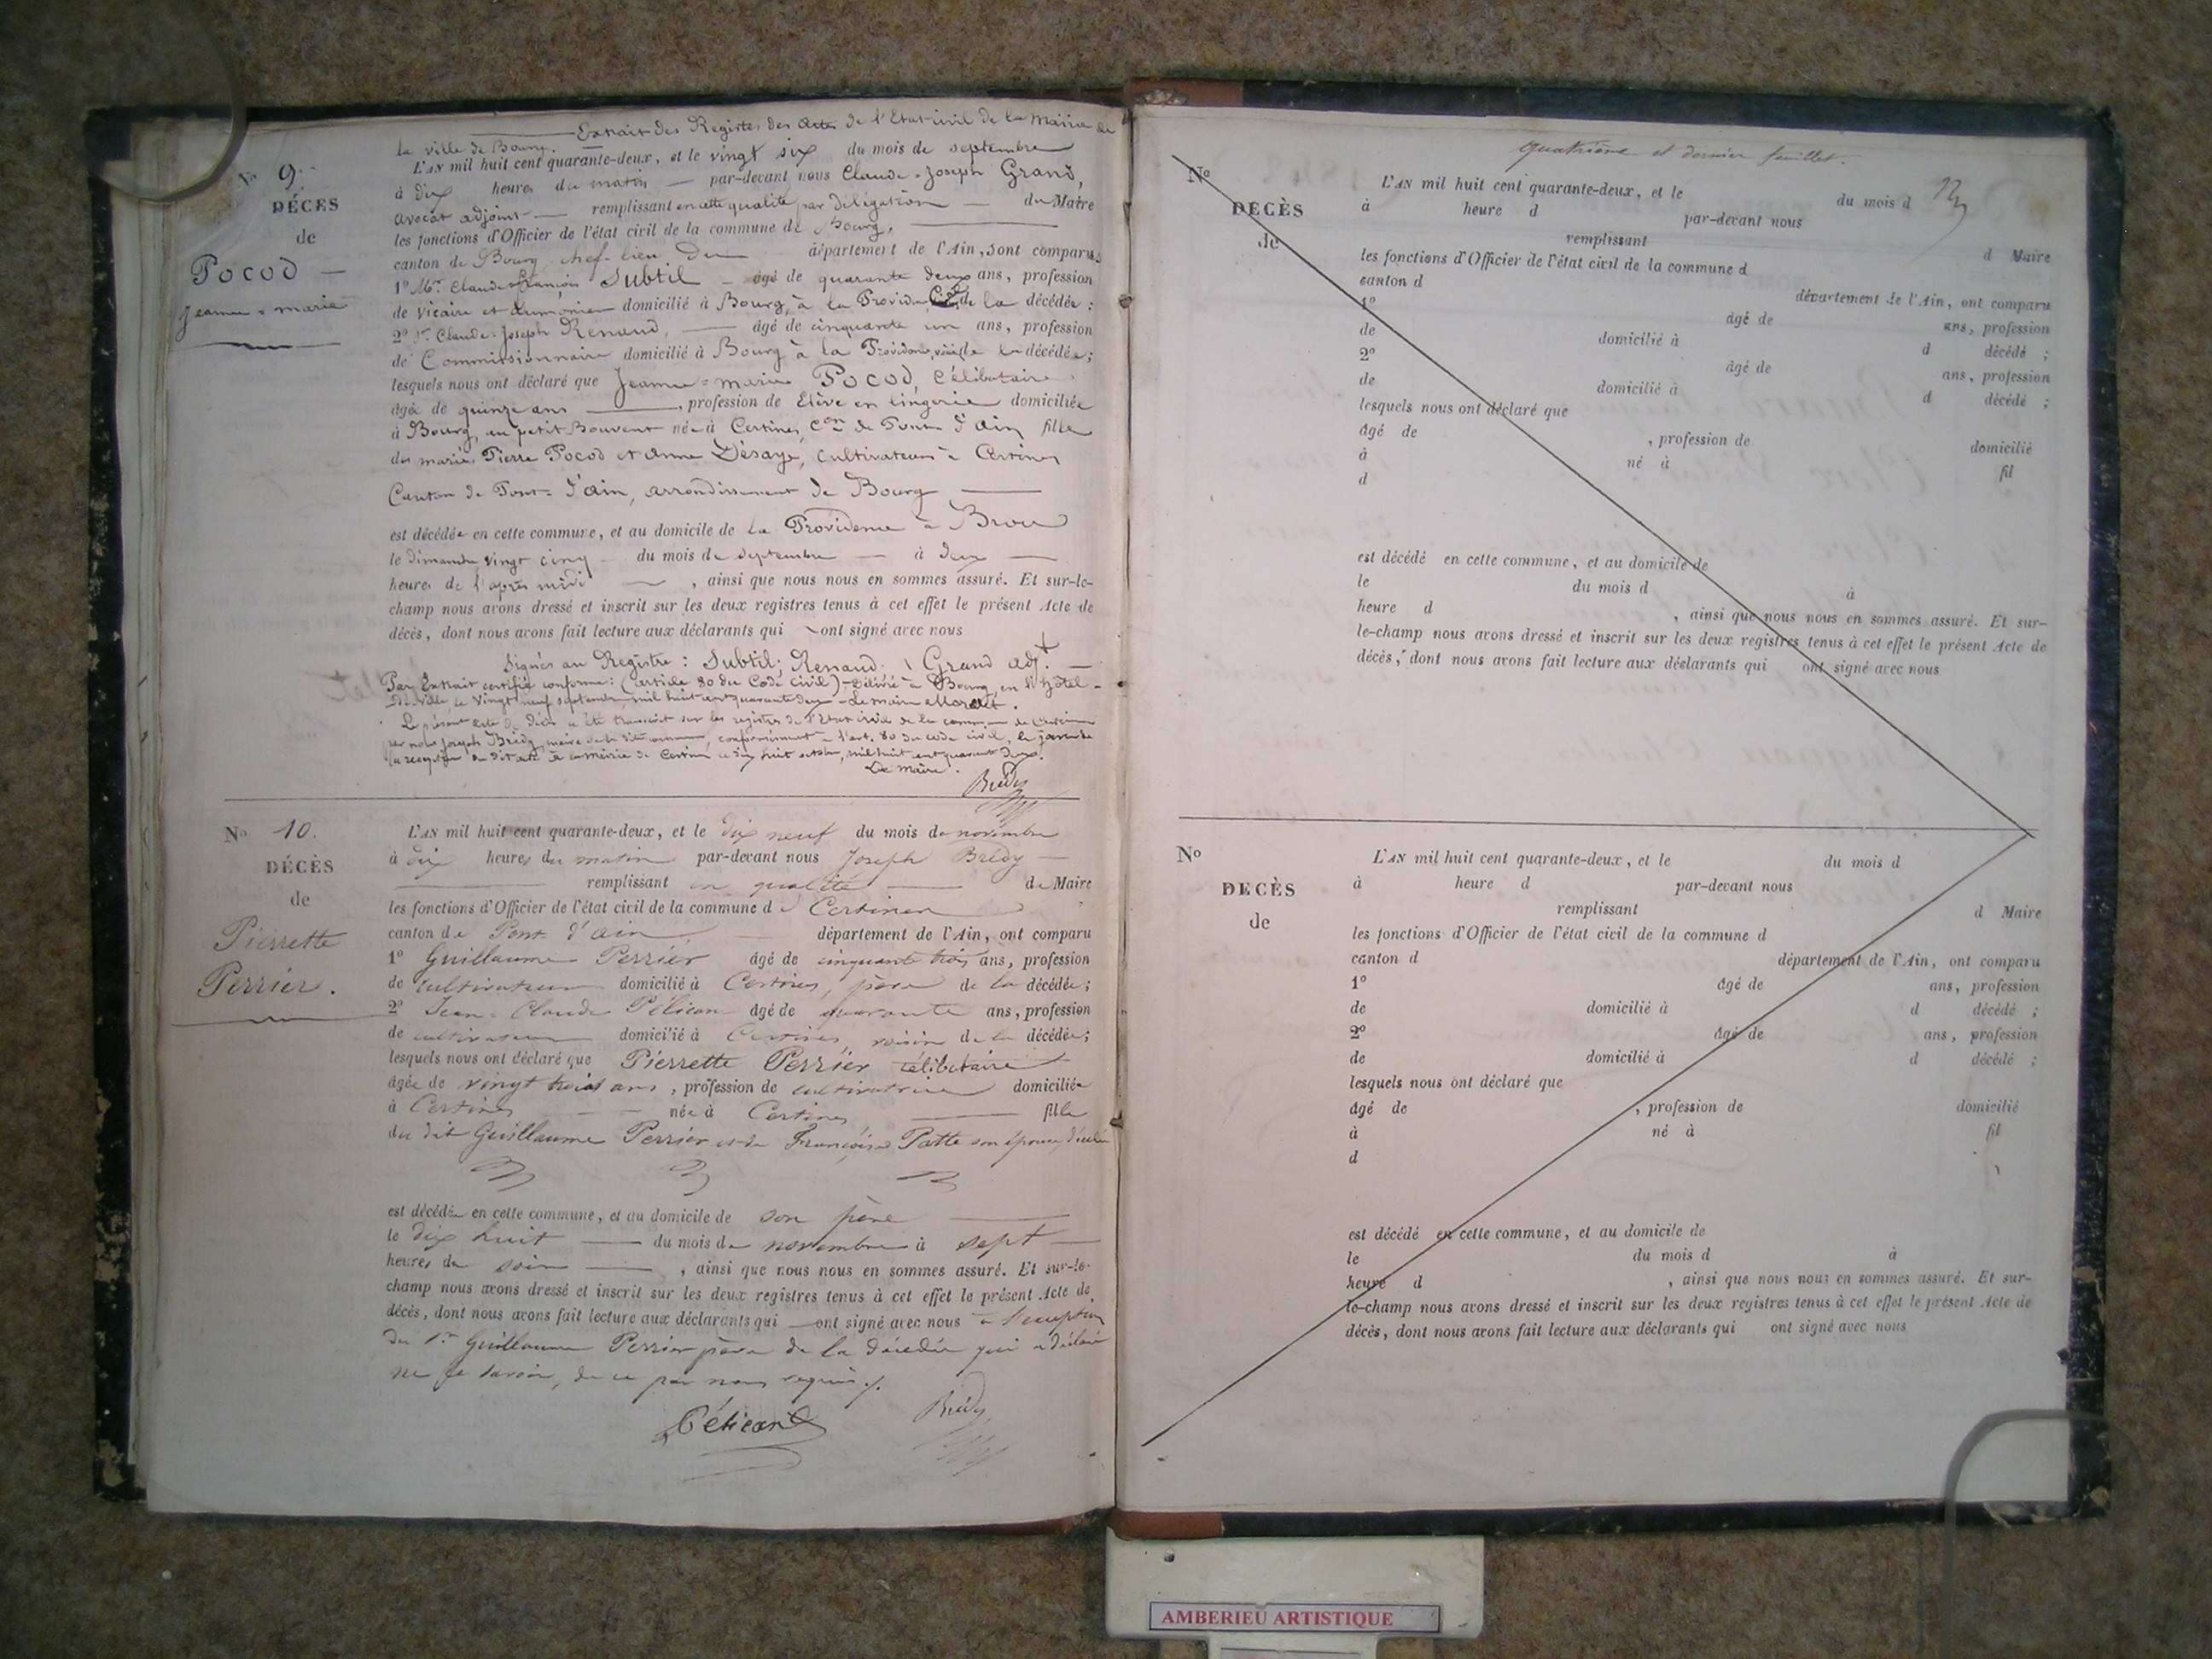 Extrait des Registres des Actes de l'Etat-civil de la Mairie de
la ville de Bourg.
N° 9.
DÉCÈS
de
Pocod
Jeanne = marie
L'AN mil huit cent quarante-deux, et le vingt six du mois de septembre
à dix heures du matin par-devant nous Claude-Joseph Grand,
avocat adjoint remplissant en cette qualité par délégation du Maire
les fonctions d'Officier de l'état civil de la commune de Bourg,
canton de Bourg chef-lieu du département de l'Ain, sont comparus
1° Mr. Claude François Subtil âgé de quarante deux ans, profession
de vicaire et aumônier domicilié à Bourg, à la de la décédée :
2° Sr. Claude-Joseph Renaud, âgé de cinquante un ans, profession
de Commissionnaire domicilié à Bourg à la Providence, de la décédée ;
lesquels nous ont déclaré que Jeanne = marie Pocod, célibataire
âgée de quinze ans , profession de Elève en lingerie domiciliée
à Bourg, au petit Bouvent née à Certines, Con de Pont d'Ain fille
des mariés Pierre Pocod et Anne Désayé, cultivateurs à Certines
Canton de Pont-d'ain, arrondissement de Bourg
est décédée en cette commune, et au domicile de la Providence à Brou
le dimanche vingt cinq du mois de septembre à deux
heures de l'après midi , ainsi que nous nous en sommes assuré. Et sur-le-
champ nous avons dressé et inscrit sur les deux registres tenus à cet effet le présent Acte de
décès, dont nous avons fait lecture aux déclarants qui ont signé avec nous
Signés au Registre : Subtil ; Renaud. Grand adjt.
Par Extrait certifié conforme : (article 80 du Code civil) - Délivré à Bourg, en l'Hôtel-
de-Ville, le vingt neuf septembre mil huit cent quarante deux - Le maire
Le présent acte de décès a été transcrit sur les registres de l'Etat civil de la commune de Certines
par nous Joseph Brédy, maire de la dite commune, conformément à l'art. 80 du code civil, le jour de
la reception du dit acte à la mairie de Certines ce dix huit octobre, mil huit cent quarante deux.
Le maire.
Brédy
N° 10.
DÉCÈS
de
Pierrette
Perrier.
L'AN mil huit cent quarante-deux, et le dix neuf du mois de novembre
à dix heures du matin par-devant nous Joseph Brédy
remplissant en qualité de Maire
les fonctions d'Officier de l'état civil de la commune de Certines
canton de Pont d'ain département de l'Ain, ont comparu
1° Guillaume Perrier âgé de cinquante trois ans, profession
de cultivateur domicilié à Certines, père de la décédée ;
2° Jean-Claude Pélican âgé de quarante ans, profession
de cultivateur domicilié à Certines, voisin de la décédée ;
lesquels nous ont déclaré que Pierrette Perrier célibataire
âgée de vingt trois ans , profession de cultivatrice domiciliée
à Certines née à Certines fille
du dit Guillaume Perrier et de Françoise Patte son épouse, décédée
est décédée en cette commune, et au domicile de son père
le dix huit du mois de novembre à sept
heures du soir , ainsi que nous nous en sommes assuré. Et sur-le-
champ nous avons dressé et inscrit sur les deux registres tenus à cet effet le présent Acte de
décès, dont nous avons fait lecture aux déclarants qui ont signé avec nous à l'exception
du Sr Guillaume Perrier père de la décédée qui a déclaré
ne le savoir, de ce par nous requis./.
Pélican Brédy
quatrième et dernier feuillet.
N°
DÉCÈS
de
L'AN mil huit cent quarante-deux, et le du mois d
à heure d par-devant nous
remplissant d Maire
les fonctions d'Officier de l'état civil de la commune d
canton d département de l'Ain, ont comparu
1° âgé de ans, profession
de domicilié à d décédé ;
2° âgé de ans, profession
de domicilié à d décédé ;
lesquels nous ont déclaré que
âgé de , profession de domicilié
à né à fil
d
est décédé en cette commune, et au domicile de
le du mois d à
heure d , ainsi que nous nous en sommes assuré. Et sur-
le-champ nous avons dressé et inscrit sur les deux registres tenus à cet effet le présent Acte de
décès, dont nous avons fait lecture aux déclarants qui ont signé avec nous
N°
DÉCÈS
de
L'AN mil huit cent quarante-deux, et le du mois d
à heure d par-devant nous
remplissant d Maire
les fonctions d'Officier de l'état civil de la commune d
canton d département de l'Ain, ont comparu
1° âgé de ans, profession
de domicilié à d décédé ;
2° âgé de ans, profession
de domicilié à d décédé ;
lesquels nous ont déclaré que
âgé de , profession de domicilié
à né à fil
d
est décédé en cette commune, et au domicile de
le du mois d à
heure d , ainsi que nous nous en sommes assuré. Et sur-
le-champ nous avons dressé et inscrit sur les deux registres tenus à cet effet le présent Acte de
décès, dont nous avons fait lecture aux déclarants qui ont signé avec nous
AMBERIEU ARTISTIQUE